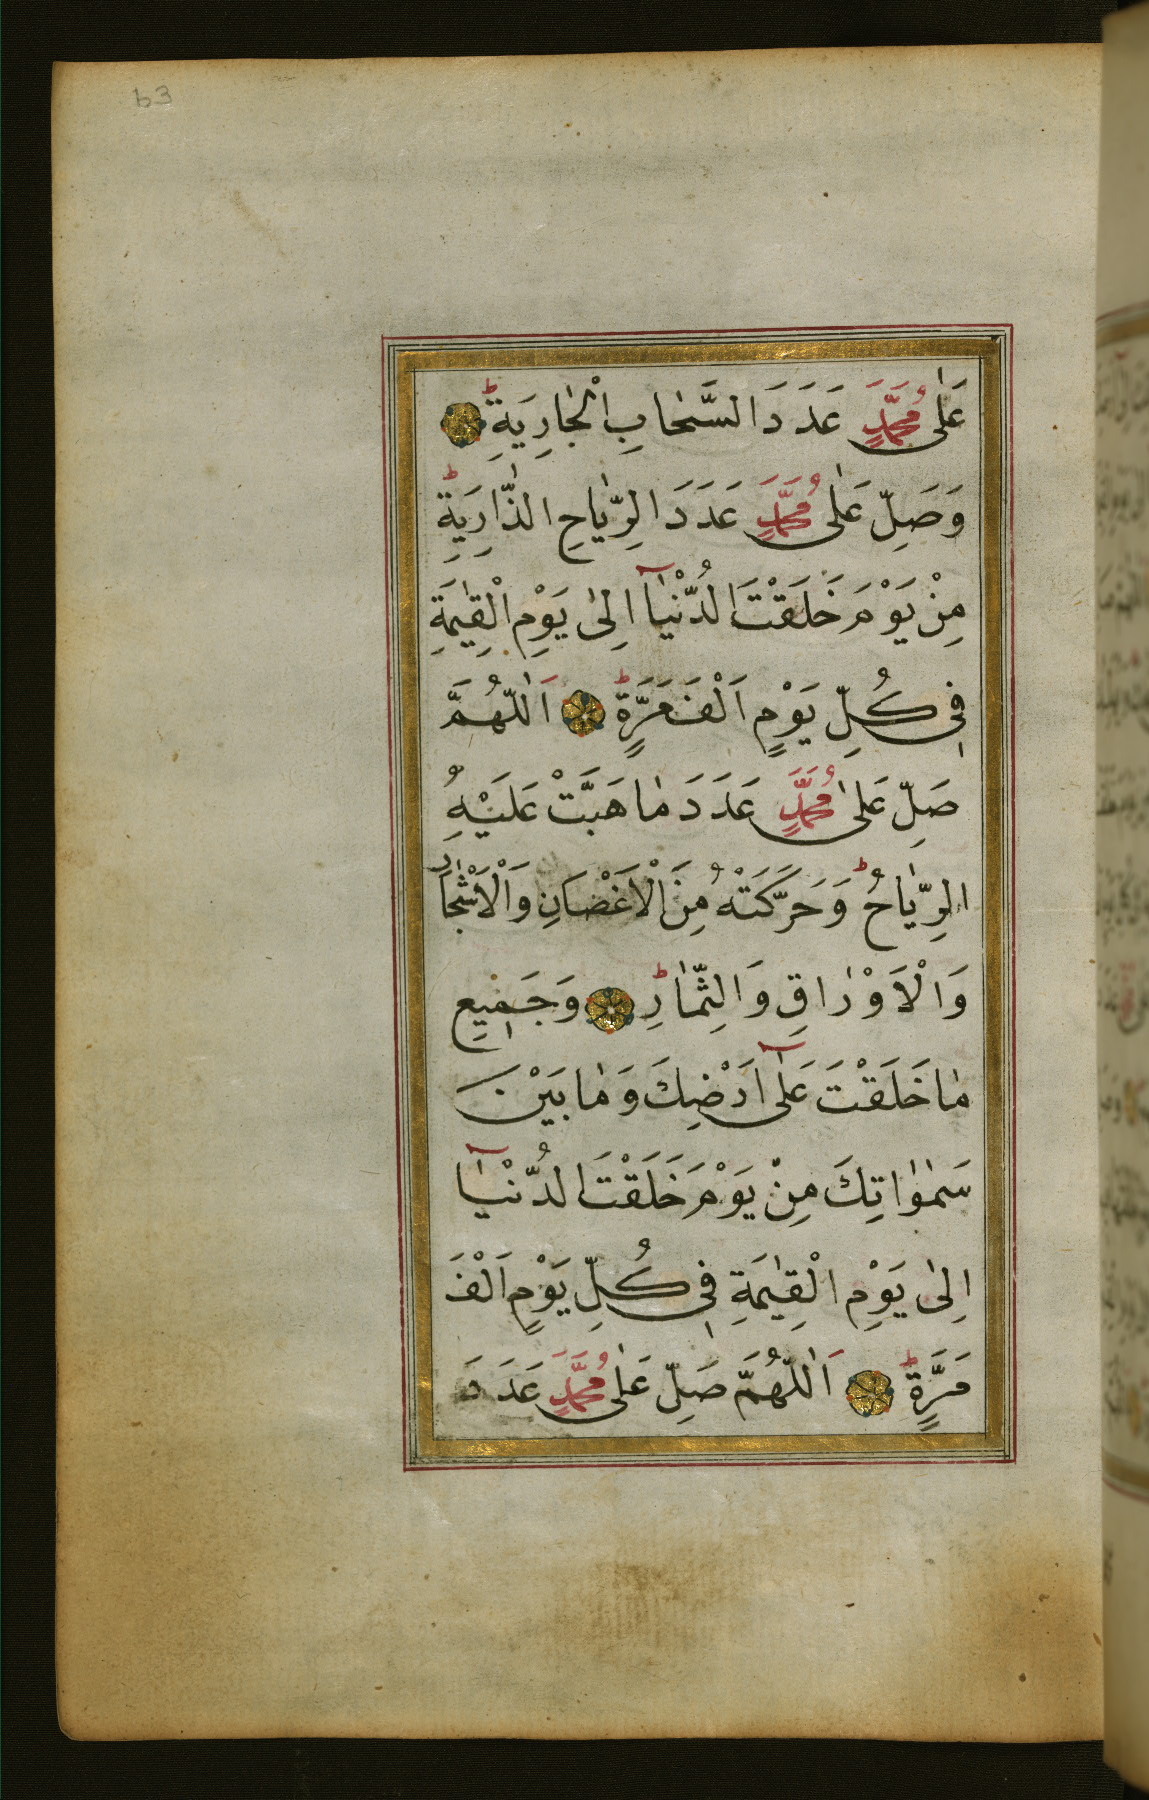 63
عَلٰى مُحَمَّدٍ عَدَدَ السَّحَابِ الْجَارِيَةِ ط
وَصَلِّ عَلٰى مُحَمَّدٍ عَدَدَ الرِّيَاحِ الذَّارِيَةِ ط
مِنْ يَوْمَ خَلَقْتَ الدُّنْيَآ اِلٰى يَوْمِ الْقِيٰمَةِ
فِى كُلِّ يَوْمٍ اَلْفَ مَرَّةٍ ط اَللّٰهُمَّ
صَلِّ عَلٰى مُحَمَّدٍ عَدَدَ مَا هَبَّتْ عَلَيْهِ
الرِّيَاحُ ط وَحَرَّكَتْهُ مِنَ الْاَغْصَانِ وَالْاَشْجَارِ
وَالْاَوْرَاقِ وَالثِّمَارِ ط وَجَمِيعِ
مَا خَلَقْتَ عَلٰٓى اَرْضِكَ وَمَا بَيْنَ
سَمٰوَاتِكَ مِنْ يَوْمَ خَلَقْتَ الدُّنْيَآ
اِلٰى يَوْمِ الْقِيٰمَةِ فِى كُلِّ يَوْمٍ اَلْفَ
مَرَّةٍ ط اَللّٰهُمَّ صَلِّ عَلٰى مُحَمَّدٍ عَدَدَ